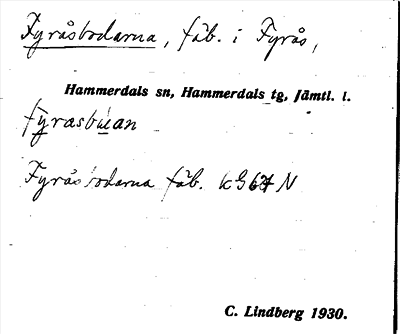 Fyråsbodarna, fäb. i Fyrås,
Hammerdals sn, Hammerdals tg, Jämtl. l.
Fyråsbodarna fäb. k G 67 N
C. Lindberg 1930.